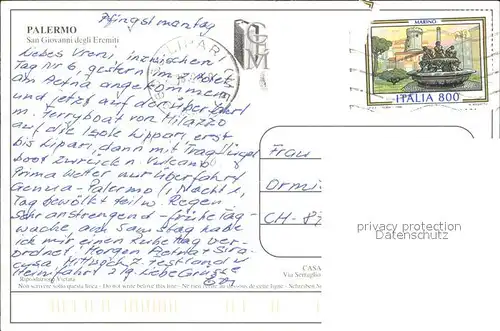 PALERMO
San Giovanni degli Eremiti
Pfingstmontag
Liebes Vreni, inzwischen
Tag Nr 6, gestern im 2. Hotel
am Aetna angekommen
und jetzt auf der Überfahrt
m. Ferryboat von Milazzo
auf die Isole Lippari, erst
bis Lipari, dann mit Tragflügel
boot zurück n. Vulcano
Prima Wetter nur Überfahrt
Genua - Palermo 1 Nacht 1
Tag bewölkt teilw. Regen
Sehr anstrengend - frühe Tag-
wache, am Samstag habe
ich mir einen Ruhetag ver-
ordnet. Morgen Aetna + Sira-
cusa Mittwoch z. Festland u
Heimfahrt Liebe Grüsse
LIPARI
MARINO
ITALIA 800
Frau
Ormi
CH-87
privacy protection
DARABANTH.COM
CASA
Via Serraglio
Riproduzione Vietata
Non scrivere sotto questa linea - Do not write below this line - Ne rien écrire au-dessous de cette ligne - Schreiben